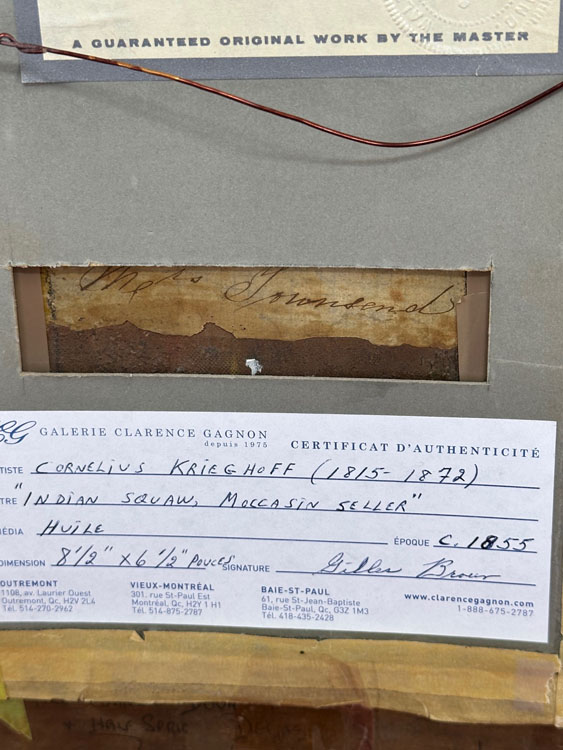 A GUARANTEED ORIGINAL WORK BY THE MASTER
Mrs Townsend
GALERIE CLARENCE GAGNON
depuis 1975
CERTIFICAT D'AUTHENTICITÉ
TISTE CORNELIUS KRIEGHOFF (1815-1872)
TRE "INDIAN SQUAW, MOCCASIN SELLER"
ÉDIA HUILE
ÉPOQUE C. 1855
DIMENSION 8 1/2" X 6 1/2" POUCES
SIGNATURE Gilles Brown
OUTREMONT
1108, av. Laurier Ouest
Outremont, Qc, H2V 2L4
Tél. 514-270-2962
VIEUX-MONTRÉAL
301, rue St-Paul Est
Montréal, Qc, H2Y 1H1
Tél. 514-875-2787
BAIE-ST-PAUL
61, rue St-Jean-Baptiste
Baie-St-Paul, Qc, G3Z 1M3
Tél. 418-435-2428
www.clarencegagnon.com
1-888-675-2787